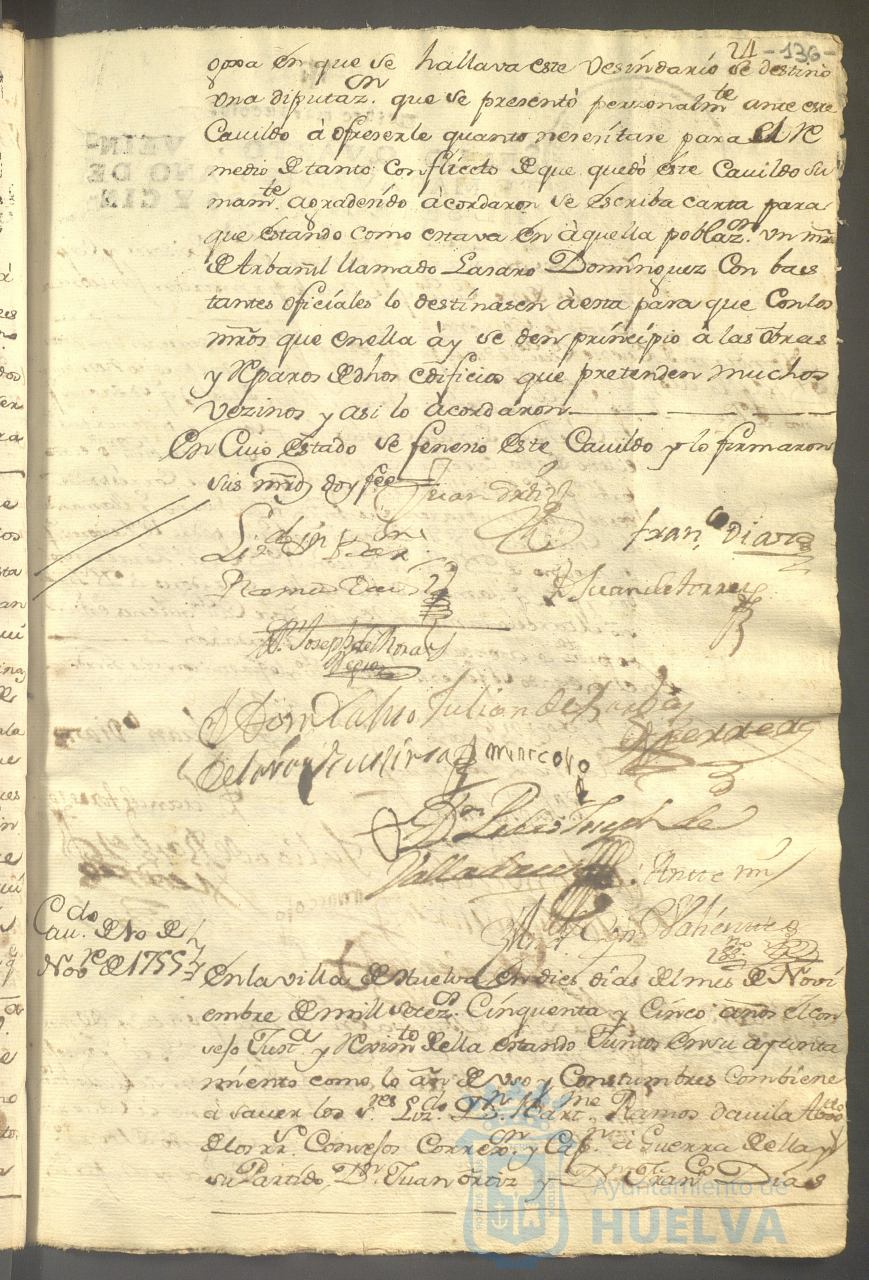 21 - 136 -
en que se hallava este Vesindario se destino
una diputazn. que se presentò personalmte ante este
Cavildo à ofreserle quanto nesesitare para el Re
medio de tanto Conflicto de que quedò este Cavildo su
mamte. agradesido àcordaron se escriba carta para
que estando como estava en àquella poblazn. un mro
de Arbañil llamado Lasaro Dominguez Con bas
tantes oficiales lo destinasen à esta para que Con los
mros que en ella ày se den principio à las obras
y Reparos de dhos edificios que pretenden muchos
Vezinos y asi lo àcordaron
En Cuio estado se fenesio este Cavildo y lo firmaron
sus mrds doy fee
Juan Ortiz
Franco Diaz
Ramos Davila
Juan de Torres
Dn. Joseph de Mora
Negron
Julian de
Dn Pedro Joseph de
Valladares
Ante mi
Cavdo. de 10 de
Nobre de 1755
En la villa de Huelva en dies dias del mes de Novi
embre de mill setezos. Cinquenta y Cinco años el con
sejo Justa y Reximto de ella estando Juntos en su ayunta
miento como lo an de uso y Constumbres Combiene
à saver los sres Lizdo. Dn Barme. Ramos davila Abdo
de los Rs Consejos Correxor. y Capn a Guerra de ella y
su Partido, Dn. Juan ortiz y Franco Dias
Ayuntamiento de
HUELVA